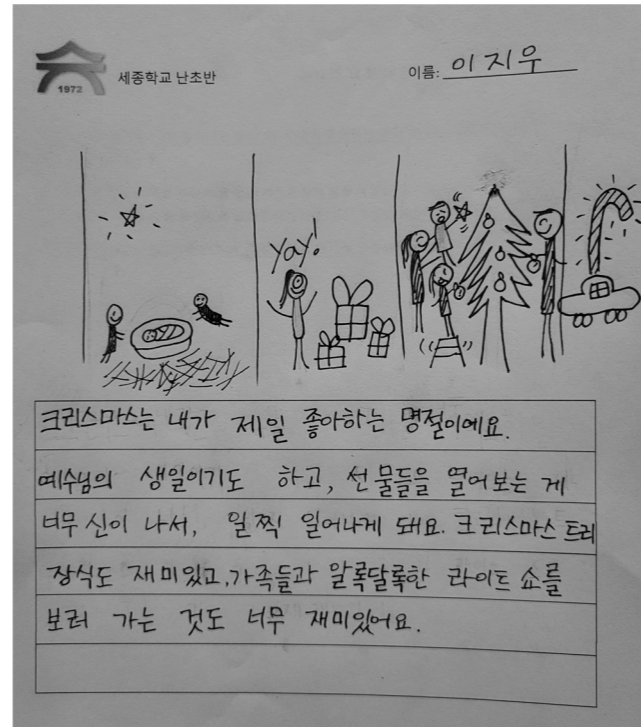 1972
세종학교 난초반
이름: 이지우
yay!
크리스마스는 내가 제일 좋아하는 명절이에요.
예수님의 생일이기도 하고, 선물들을 열어보는 게
너무 신이 나서, 일찍 일어나게 돼요. 크리스마스 트리
장식도 재미있고, 가족들과 알록달록한 라이트 쇼를
보러 가는 것도 너무 재미있어요.